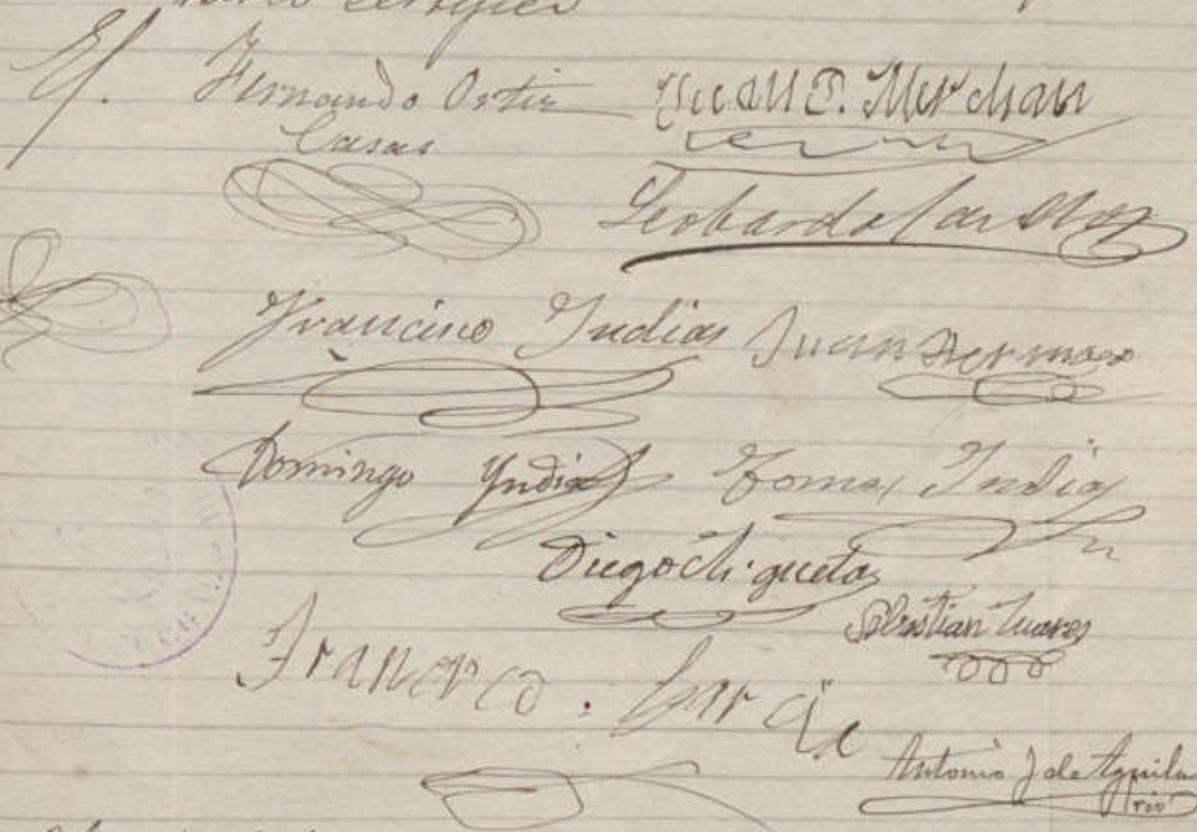 certifico
Fernando Ortiz Juan D. Merchan
Casas
Leobardo Casillas
Francisco Indias Juan Hermoso
Domingo Yndias Tomas Indias
Diego
Sebastian Suares
Francisco . Garcia
Antonio J de Aguila
rio